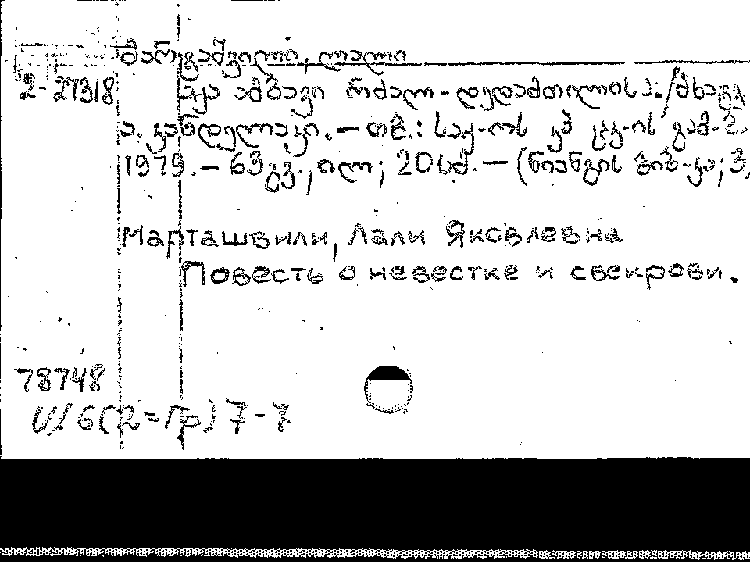 მარტაშვილი, ლალი
2-27318 აქა ამბავი რძალ-დედამთილისა./მხატვ
ა. კანდელაკი.—თბ.: საქ-ოს კპ ცკ-ის გამ-ბა
1979.—63გვ., ილ; 20სმ.—(ნიანგის ბიბ-კა; 3,
Марташвили, Лали Яковлевна
Повесть о невестке и свекрови.
78748